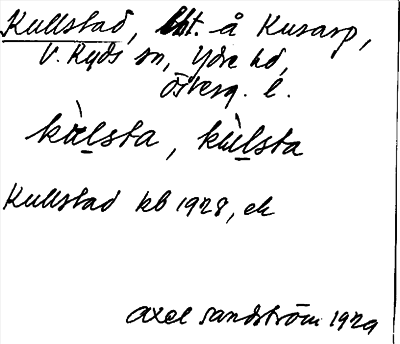 Kullstad, lht. å Kusarp,
V. Ryds sn, Ydre hd,
Österg. l.
kὰlsta, kùlsta
Kullstad kb 1928, ek
Axel Sandström 1929